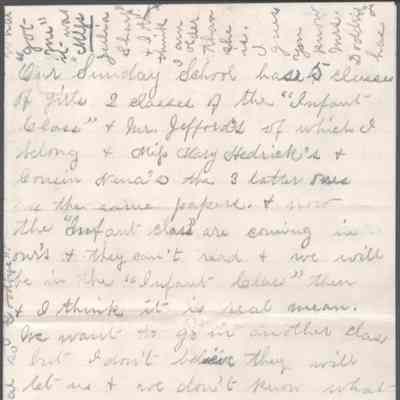 "got
me"
it was
"Miss
Julia
Clark"
& I
think
I am
older
than
she
is.
I guess
you
know
Mrs.
has
Our Sunday School has 5 classes
of girls 2 classes of the "Infant
Class" & Mr. Jefford's of which I
belong & Miss Mary Hedrick's &
Cousin Nena's the 3 latter ones
the same papers. & now
the "Infant class" are coming in
our's & they can't read & we will
be in the "Infant Class" then
& I think it is real mean.
We want to go in another class
but I don't believe they will
let us & we don't know what